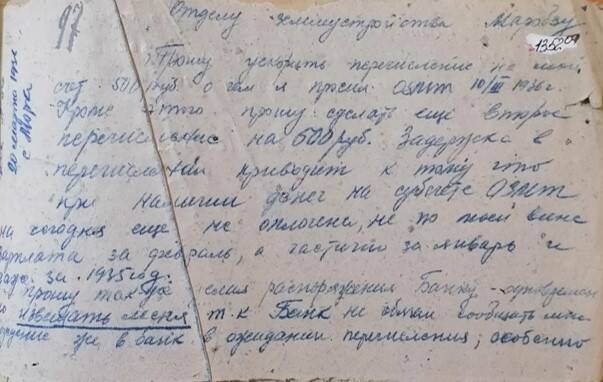 Отделу землеустройства
135209
20 марта 1936
Прошу ускорить перечисление на мой
счет 500 руб. о чем я просил ОЗЕТ 10/III 1936 г.
Кроме этого прошу сделать еще второе
перечисление на 600 руб. Задержка в
перечислении приводит к тому что
при наличии денег на субсчете ОЗЕТ
на сегодня еще не оплочена, не по моей вине
зарплата за февраль, а частично за январь и
за 1935 год.
прошу распоряжения Банку
извещать меня т.к Банк не обязан сообщать мне
же в банк в ожидании перечисления, особенно